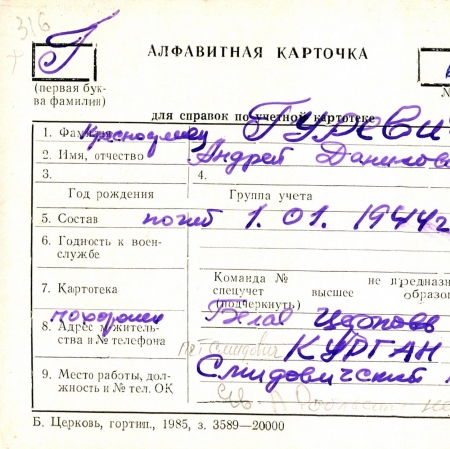 316
Г
АЛФАВИТНАЯ КАРТОЧКА
(первая бук-
ва фамилии)
№
для справок по учетной картотеке
1. Фамилия Красноармеец Гуревич
2. Имя, отчество Андрей Данилов
3. 4.
Год рождения Группа учета
5. Состав погиб 1.01.1944г
6. Годность к воен-
службе
7. Картотека
Команда № не предназна
спецучет высшее образо
(подчеркнуть)
похоронен Белая Церковь
8. Адрес и житель-
ства и № телефона
КУРГАН
9. Место работы, дол-
жность и № тел. ОК
Смидовичский
Б. Церковь, гортип., 1985, з. 3589—20000